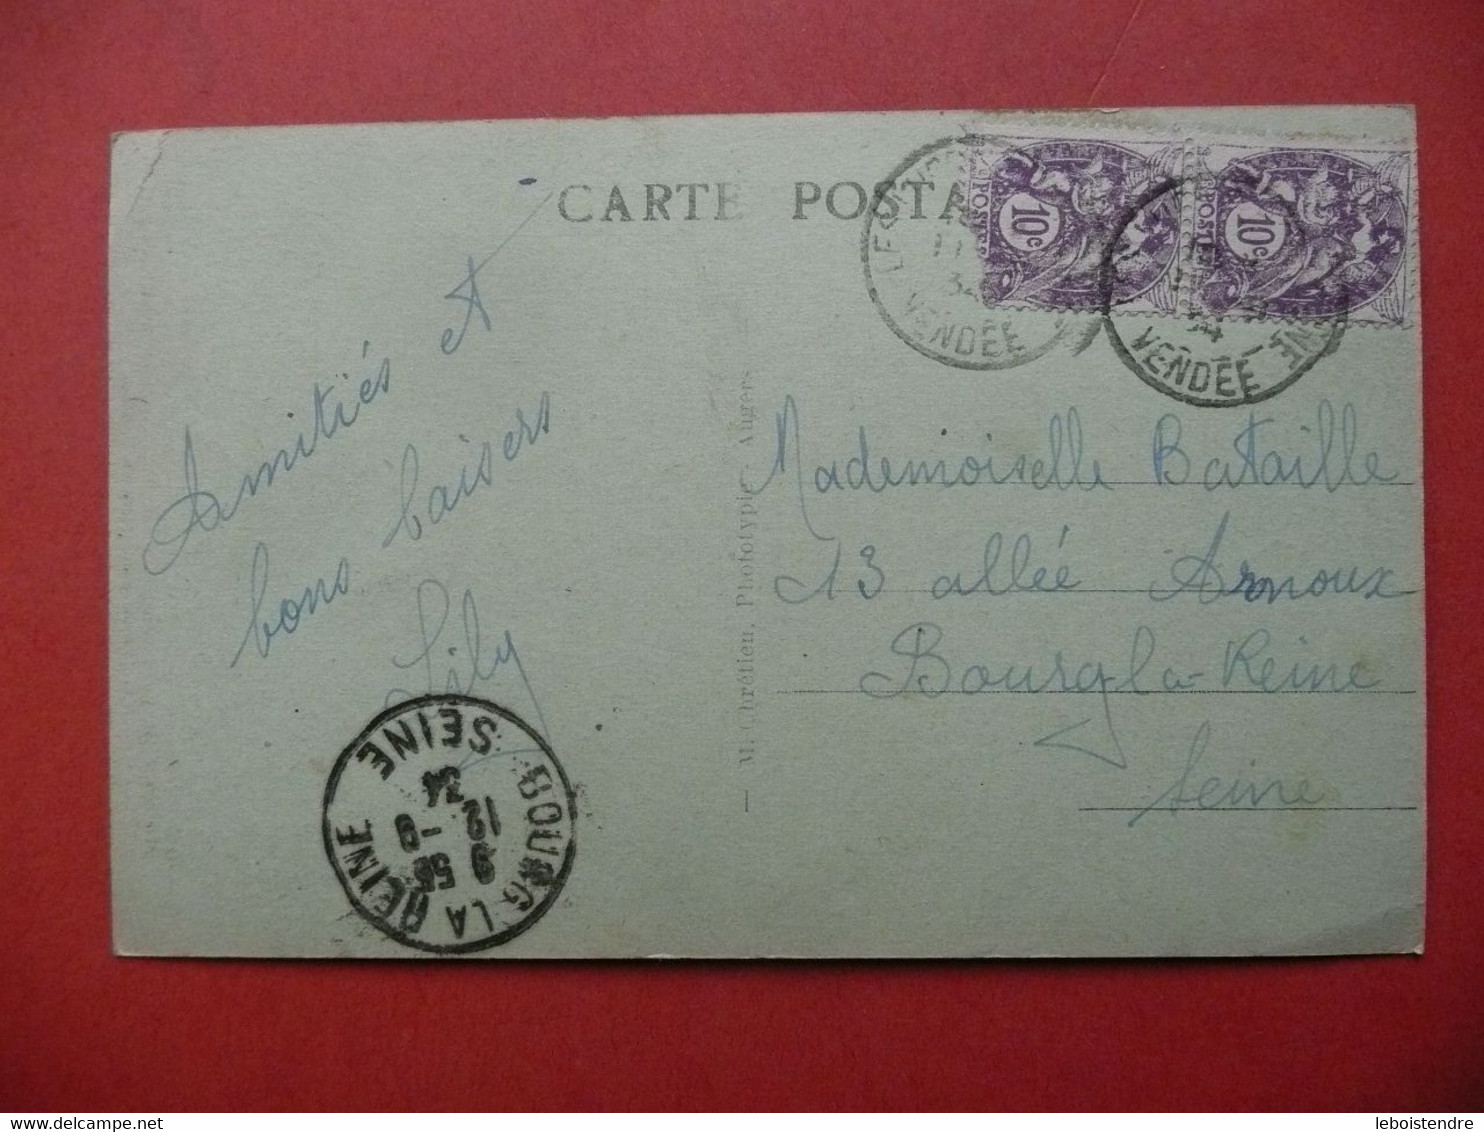 CARTE POSTA
POSTES
10c
POSTES
10c
VENDÉE
34
VENDÉE
Amitiés et
bons baisers
Lily
Mademoiselle Bataille
13 allée Arnoux
Bourg la-Reine
Seine
M. Chrétien, Phototypie - Angers
BOURG LA REINE
SEINE
9 55
12 -9
34
leboistendre